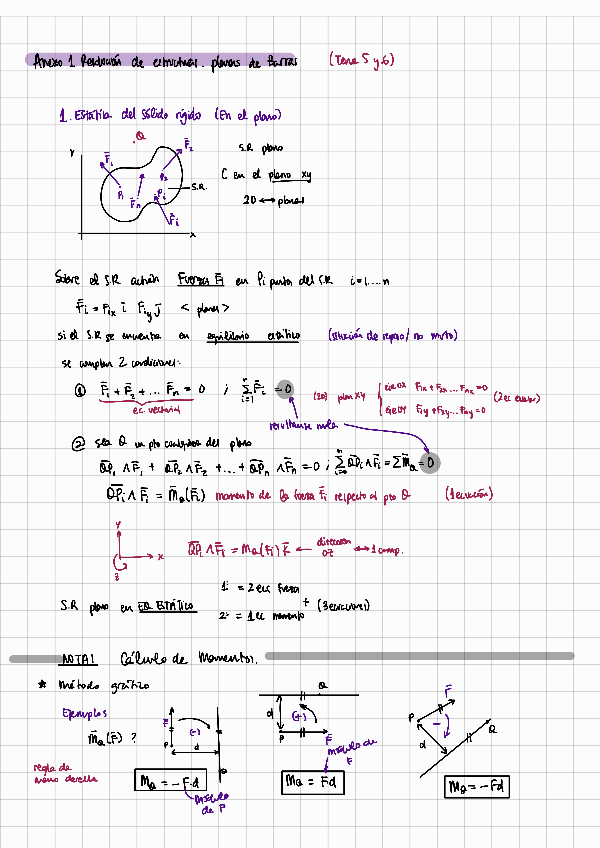 Anexo 1 Resolución de estructuras planas de barras (Tema 5 y 6)
1. Estática del sólido rígido (En el plano)
Q
y
F̄₁
F̄₂
S.R plano
P₁
P₂
Pᵢ
S.R.
C en el plano xy
F̄ₙ
F̄ᵢ
2D ↔ planas
x
Sobre el S.R actúan Fuerzas F̄ᵢ en Pᵢ puntos del S.R i=1,...n
F̄ᵢ = Fᵢₓ ī Fᵢy j̄ < planas >
si el S.R se encuentra en equilibrio estático (situación de reposo / no mvto)
se cumplen 2 condiciones:
① F̄₁ + F̄₂ + ... F̄ₙ = 0 ; Σ F̄ᵢ = 0 (2D) plan XY
ec. vectorial
eje OX F₁ₓ + F₂ₓ ... Fₙₓ = 0
eje OY F₁y + F₂y ... Fₙy = 0
(2 ec escalar)
resultante nula
② sea Q un pto cualquiera del plano
QP₁ ∧ F̄₁ + QP₂ ∧ F̄₂ + ... + QPₙ ∧ F̄ₙ = 0 ; Σ QPᵢ ∧ F̄ᵢ = Σ M̄Q = 0
QPᵢ ∧ F̄ᵢ = M̄Q(F̄ᵢ) momento de la fuerza F̄ᵢ respecto al pto Q (1 ecuación)
y
x
z
QPᵢ ∧ F̄ᵢ = MQ(Fᵢ) k̄ ← dirección OZ ↔ 1 comp.
1ª = 2 ecs fuerza
S.R plano en EQ. ESTÁTICO + (3 ecuaciones)
2ª = 1 ec momento
NOTA! Cálculo de Momentos.
* Método gráfico
Ejemplos
M̄Q(F̄) ?
regla de mano derecha
F̄
P
(-)
d
Q
MQ = - F·d
módulo de F
Q
d
(+)
P
F̄
módulo de F
MQ = Fd
F̄
P
-
d
Q
MQ = - Fd